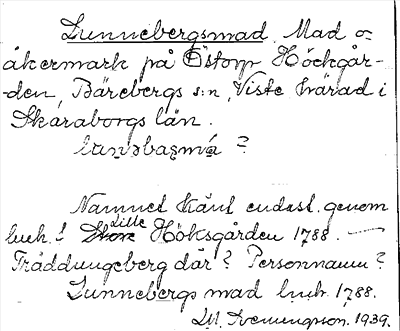 Lunnebergsmad. Mad o.
åkermark på Östorp Höckgår-
den, Bärebergs s:n, Viste härad i
Skaraborgs län.
?
Namnet känt endast genom
lmk. f Store Lille Höksgården 1788. —
Träddungeberg där? Personnamn?
Lunnebergs mad lmk. 1788.
1939.